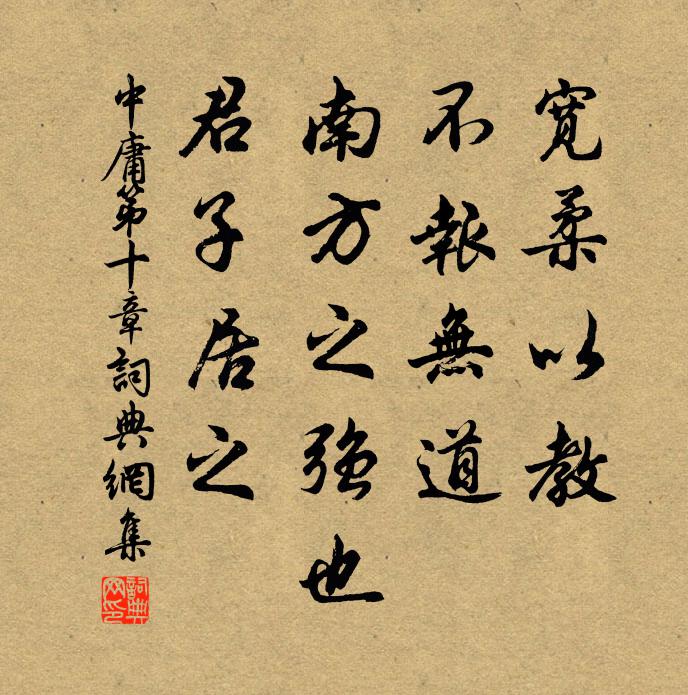 寬柔以教
不報無道
南方之強也
君子居之
中庸第十章詞典網集
詞典网印